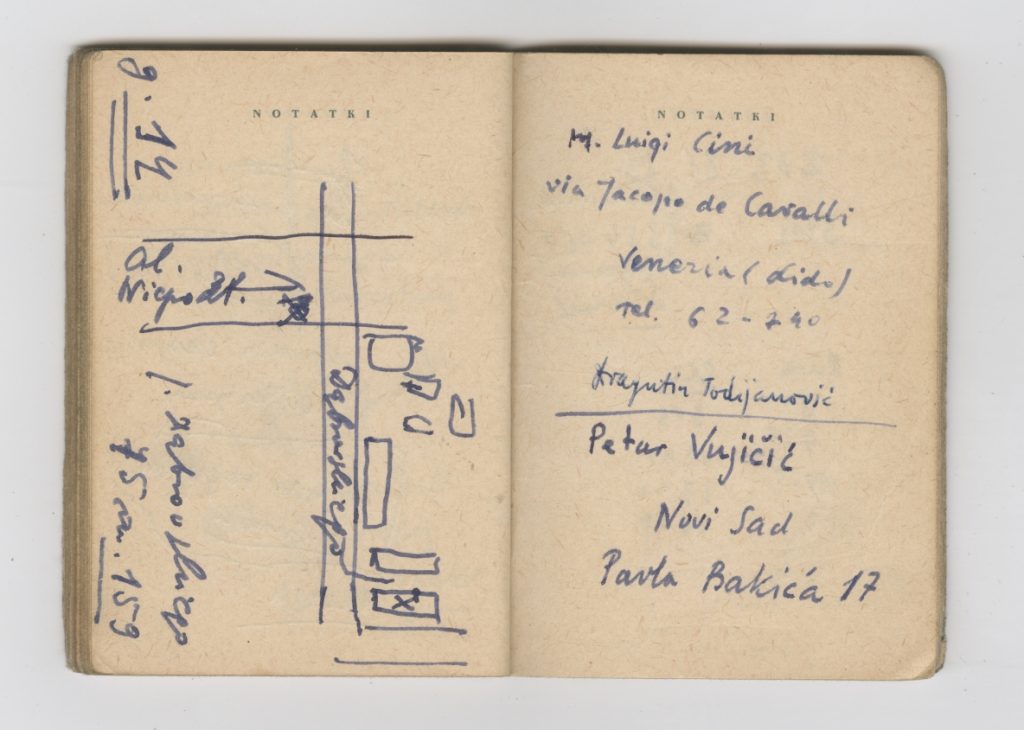 NOTATKI
g. 14
al.
Niepodl.
Dąbrowskiego
J. Dąbrowskiego
75 m. 159
NOTATKI
M. Luigi Cini
via Jacopo de Cavalli
Venezia (Lido)
Tel. 62-740
Dragutin Tadijanović
Petar Vujičić
Novi Sad
Pavla Bakića 17